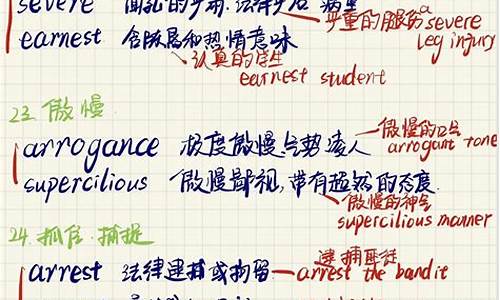 severe
严重的腿伤 a severe leg injury
earnest 含
认真的学生
earnest student
23. 傲慢
arrogance 极度傲慢.气势凌人
傲慢的口气
arrogant tone
supercilious 傲慢鄙视,带有超然的态度.
傲慢的神色
supercilious manner
24. 抓住.捕捉
arrest 法律逮捕或拘留
逮捕匪徒
arrest the bandit